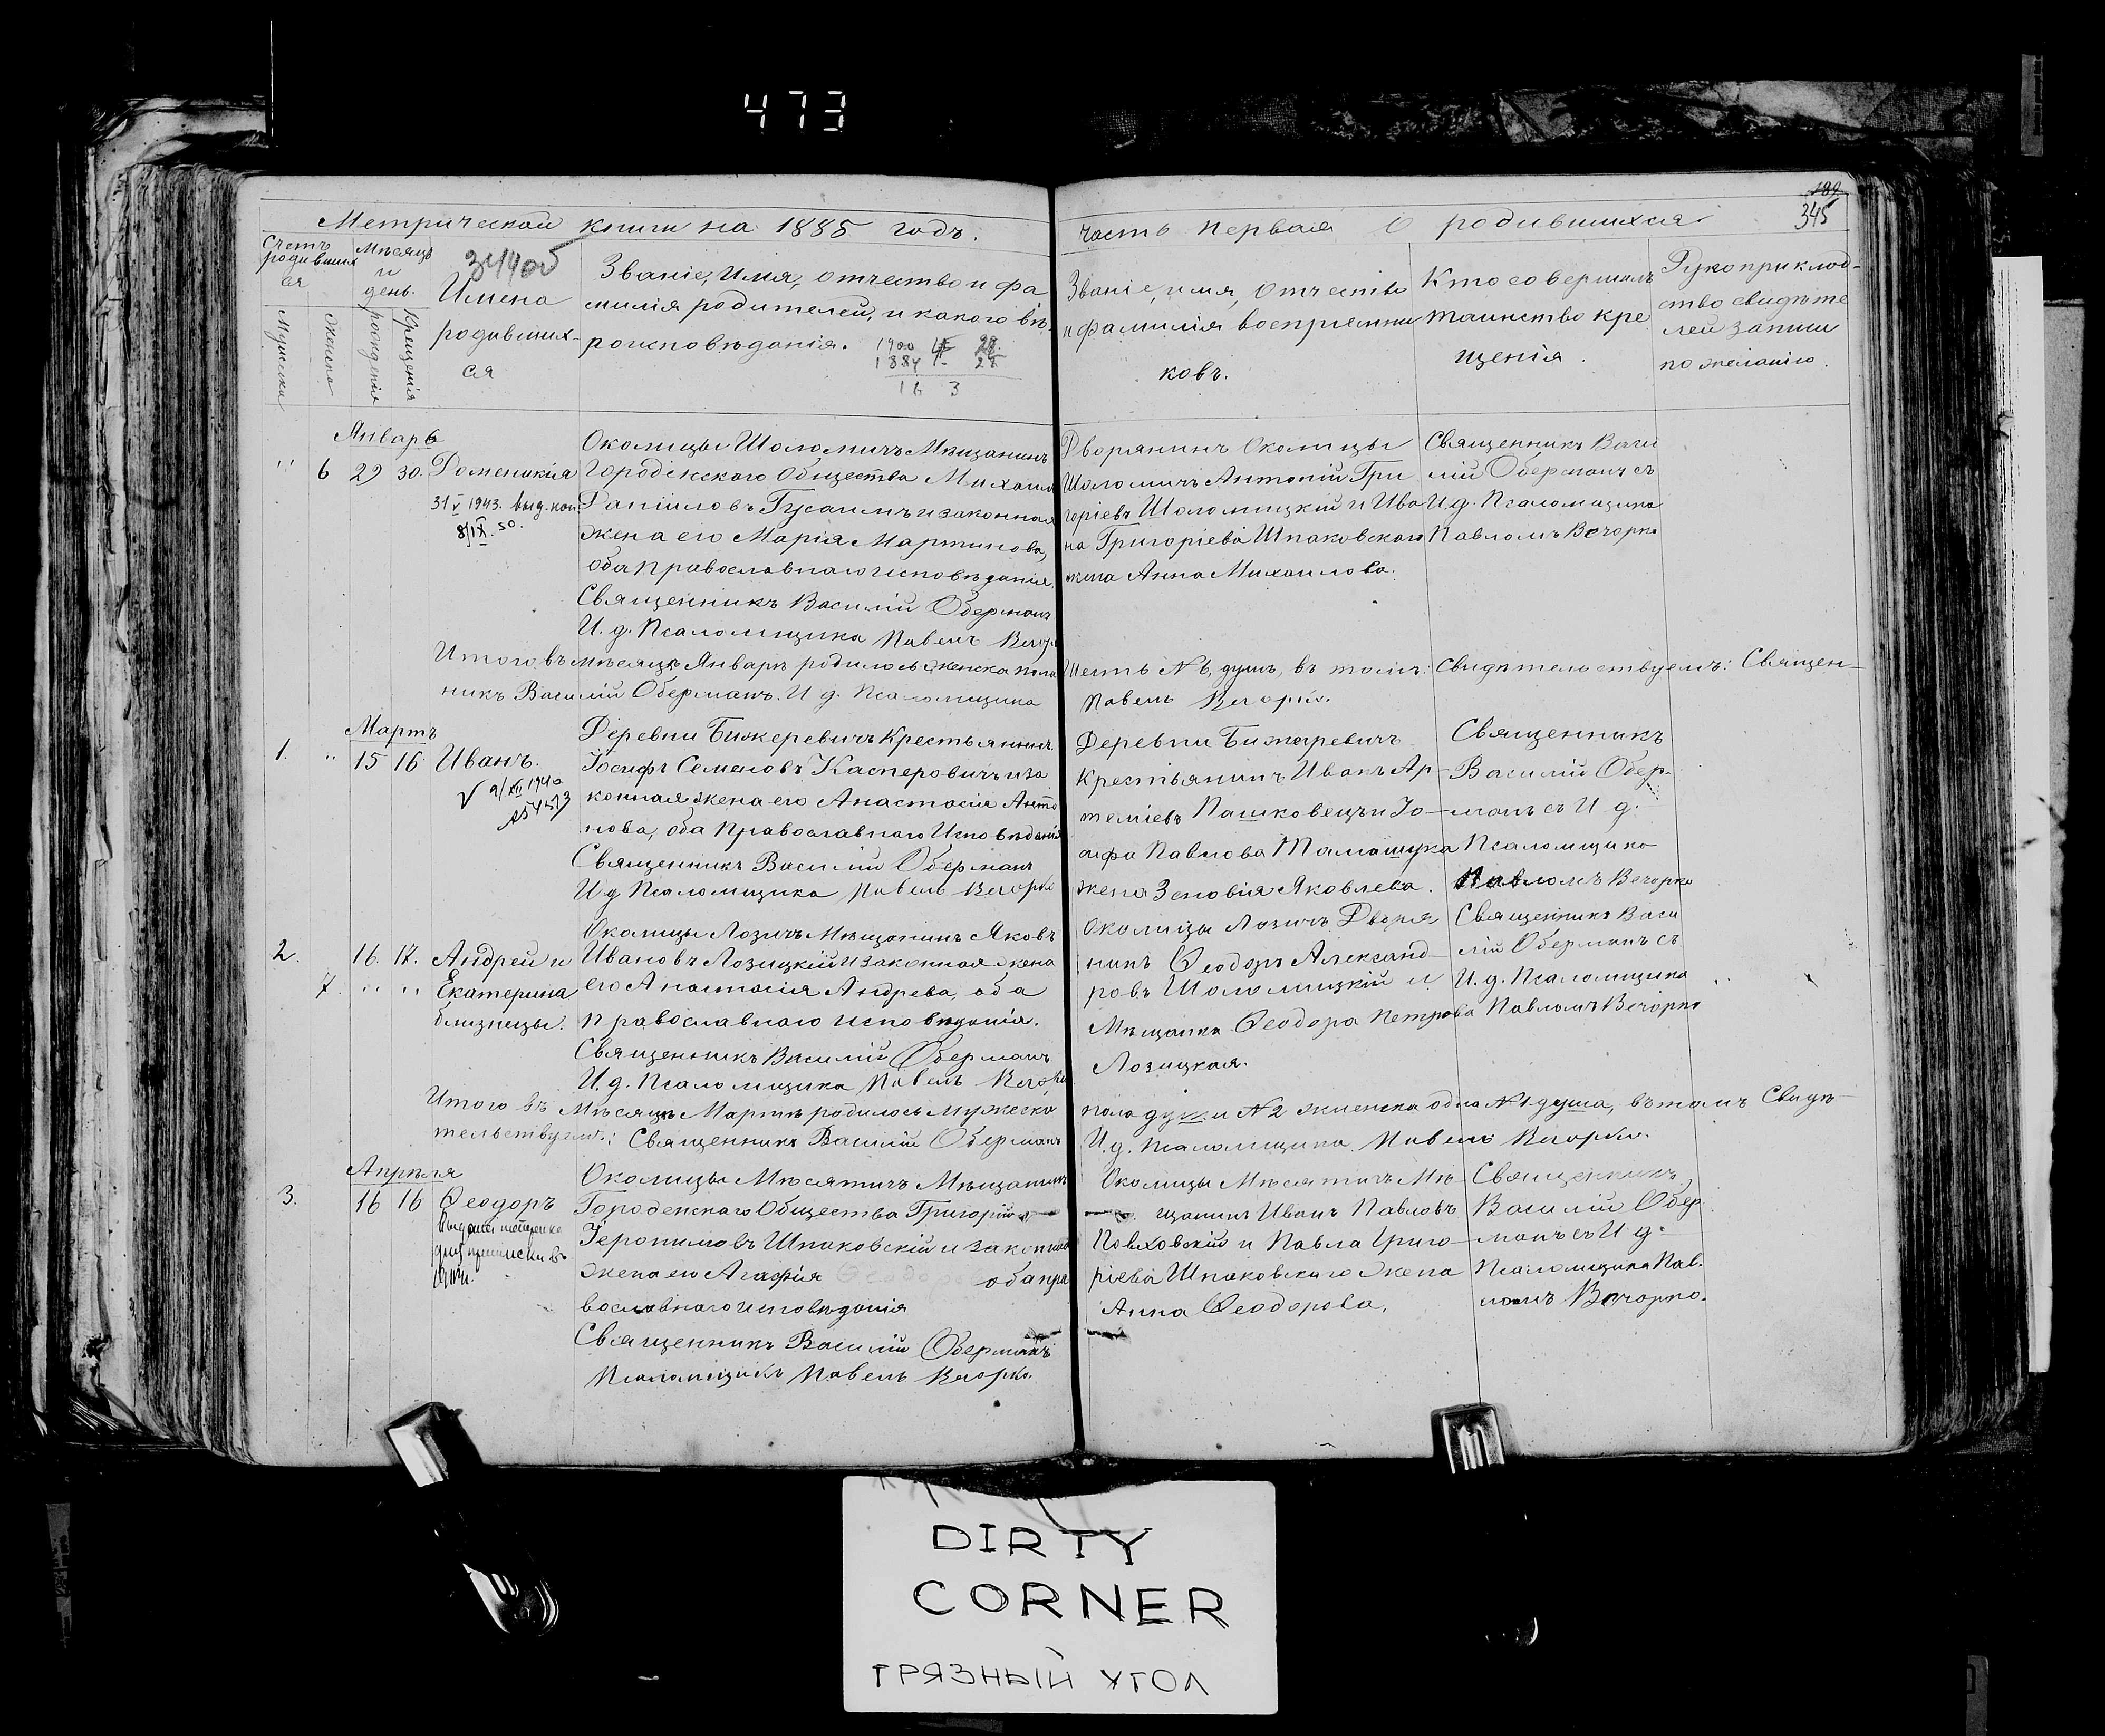 473
189
345
Метрической книги на 1885 годъ. часть первая о родившихся
344об
Счетъ родившихся
Мѣсяцъ и день.
Мужеска
Женска
рожденія
Крещенія
Имена
родивших-
ся
Званіе, имя, отчество и фа
милія родителей, и какого вѣ
роисповѣданія.
1900
1884
16 3
Званіе, имя, отчество
и фамилія воспріемни
ковъ.
Кто совершалъ
таинство кре
щенія.
Рукоприклад-
ство свидѣте
лей записи
по желанію.
Январь
" 6 29 30. Доменикія
31 V 1943. выд. коп.
8/IX. 50.
Околицы Шоломичъ Мѣщанинъ
Городенскаго Общества Михаилъ
Даніиловъ Гусаимъ и законная
жена его Марія Мартинова,
оба Православнаго исповѣданія.
Священникъ Василій Оберманъ
И. д. Псаломщика Павелъ Вечорко
Дворянинъ Околицы
Шоломичъ Антоній Гри
горіевъ Шоломицкій и Ива
на Григоріева Шпаковскаго
жена Анна Михаилова.
Священникъ Васи
лій Оберманъ съ
И. д. Псаломщика
Павломъ Вечорко
Итого въ мѣсяцѣ Январѣ родилось женска пола шесть № 6, душъ, въ томъ свидѣтельствуемъ: Священ-
никъ Василій Оберманъ. И д. Псаломщика Павелъ Вечорко.
Мартъ
1. " 15 16 Иванъ.
9/XII 1940
Деревни Бижеревичъ Крестьянинъ
Іосифъ Семеновъ Касперовичъ и за
конная жена его Анастасія Анто
нова, оба Православнаго Исповѣданія
Священникъ Василій Оберманъ
И д Псаломщика Павелъ Вечорко
Деревни Бижеревичъ
Крестьянинъ Иванъ Ар-
теміевъ Пашковецъ и Іо-
сифа Павлова Тамашука
жена Зеновія Яковлева.
Священникъ
Василій Обер-
манъ съ И д.
Псаломщика
Павломъ Вечорко
2. 16. 17. Андрей и
7. " " Екатерина
близнецы.
Околицы Лозичъ Мѣщанинъ Яковъ
Ивановъ Лозицкій и законная жена
его Анастасія Андрева, оба
православнаго исповѣданія.
Священникъ Василій Оберманъ
И. д. Псаломщика Павелъ Вечорко
Околицы Лозичъ Дворя
нинъ Ѳеодоръ Александ-
ровъ Шоломицкій и
Мѣщанка Ѳеодора Петрова
Лозицкая.
Священникъ Васи
лій Оберманъ съ
И. д. Псаломщика
Павломъ Вечорко
Итого въ Мѣсяцѣ Мартѣ родилось Мужеска пола души №2 женска одна №1 душа, въ томъ Свидѣ-
тельствуемъ: Священникъ Василій Оберманъ И. д. Псаломщика Павелъ Вечорко.
Апрѣля
3. 16 16 Ѳеодоръ
Околицы Мѣсятичъ Мѣщанинъ
Городенскаго Общества Григорій
Іеронимовъ Шпаковскій и законная
жена его Агафія оба пра
вославнаго исповѣданія
Священникъ Василій Оберманъ
Псаломщикъ Павелъ Вечорко.
Околицы Мѣсятичъ Мѣ-
щанинъ Иванъ Павловъ
Полховскій и Павла Григо-
ріева Шпаковскаго жена
Анна Ѳеодорова.
Священникъ
Василій Обер
манъ съ И д.
Псаломщика Пав-
ломъ Вечорко.
DIRTY
CORNER
ГРЯЗНЫЙ УГОЛ